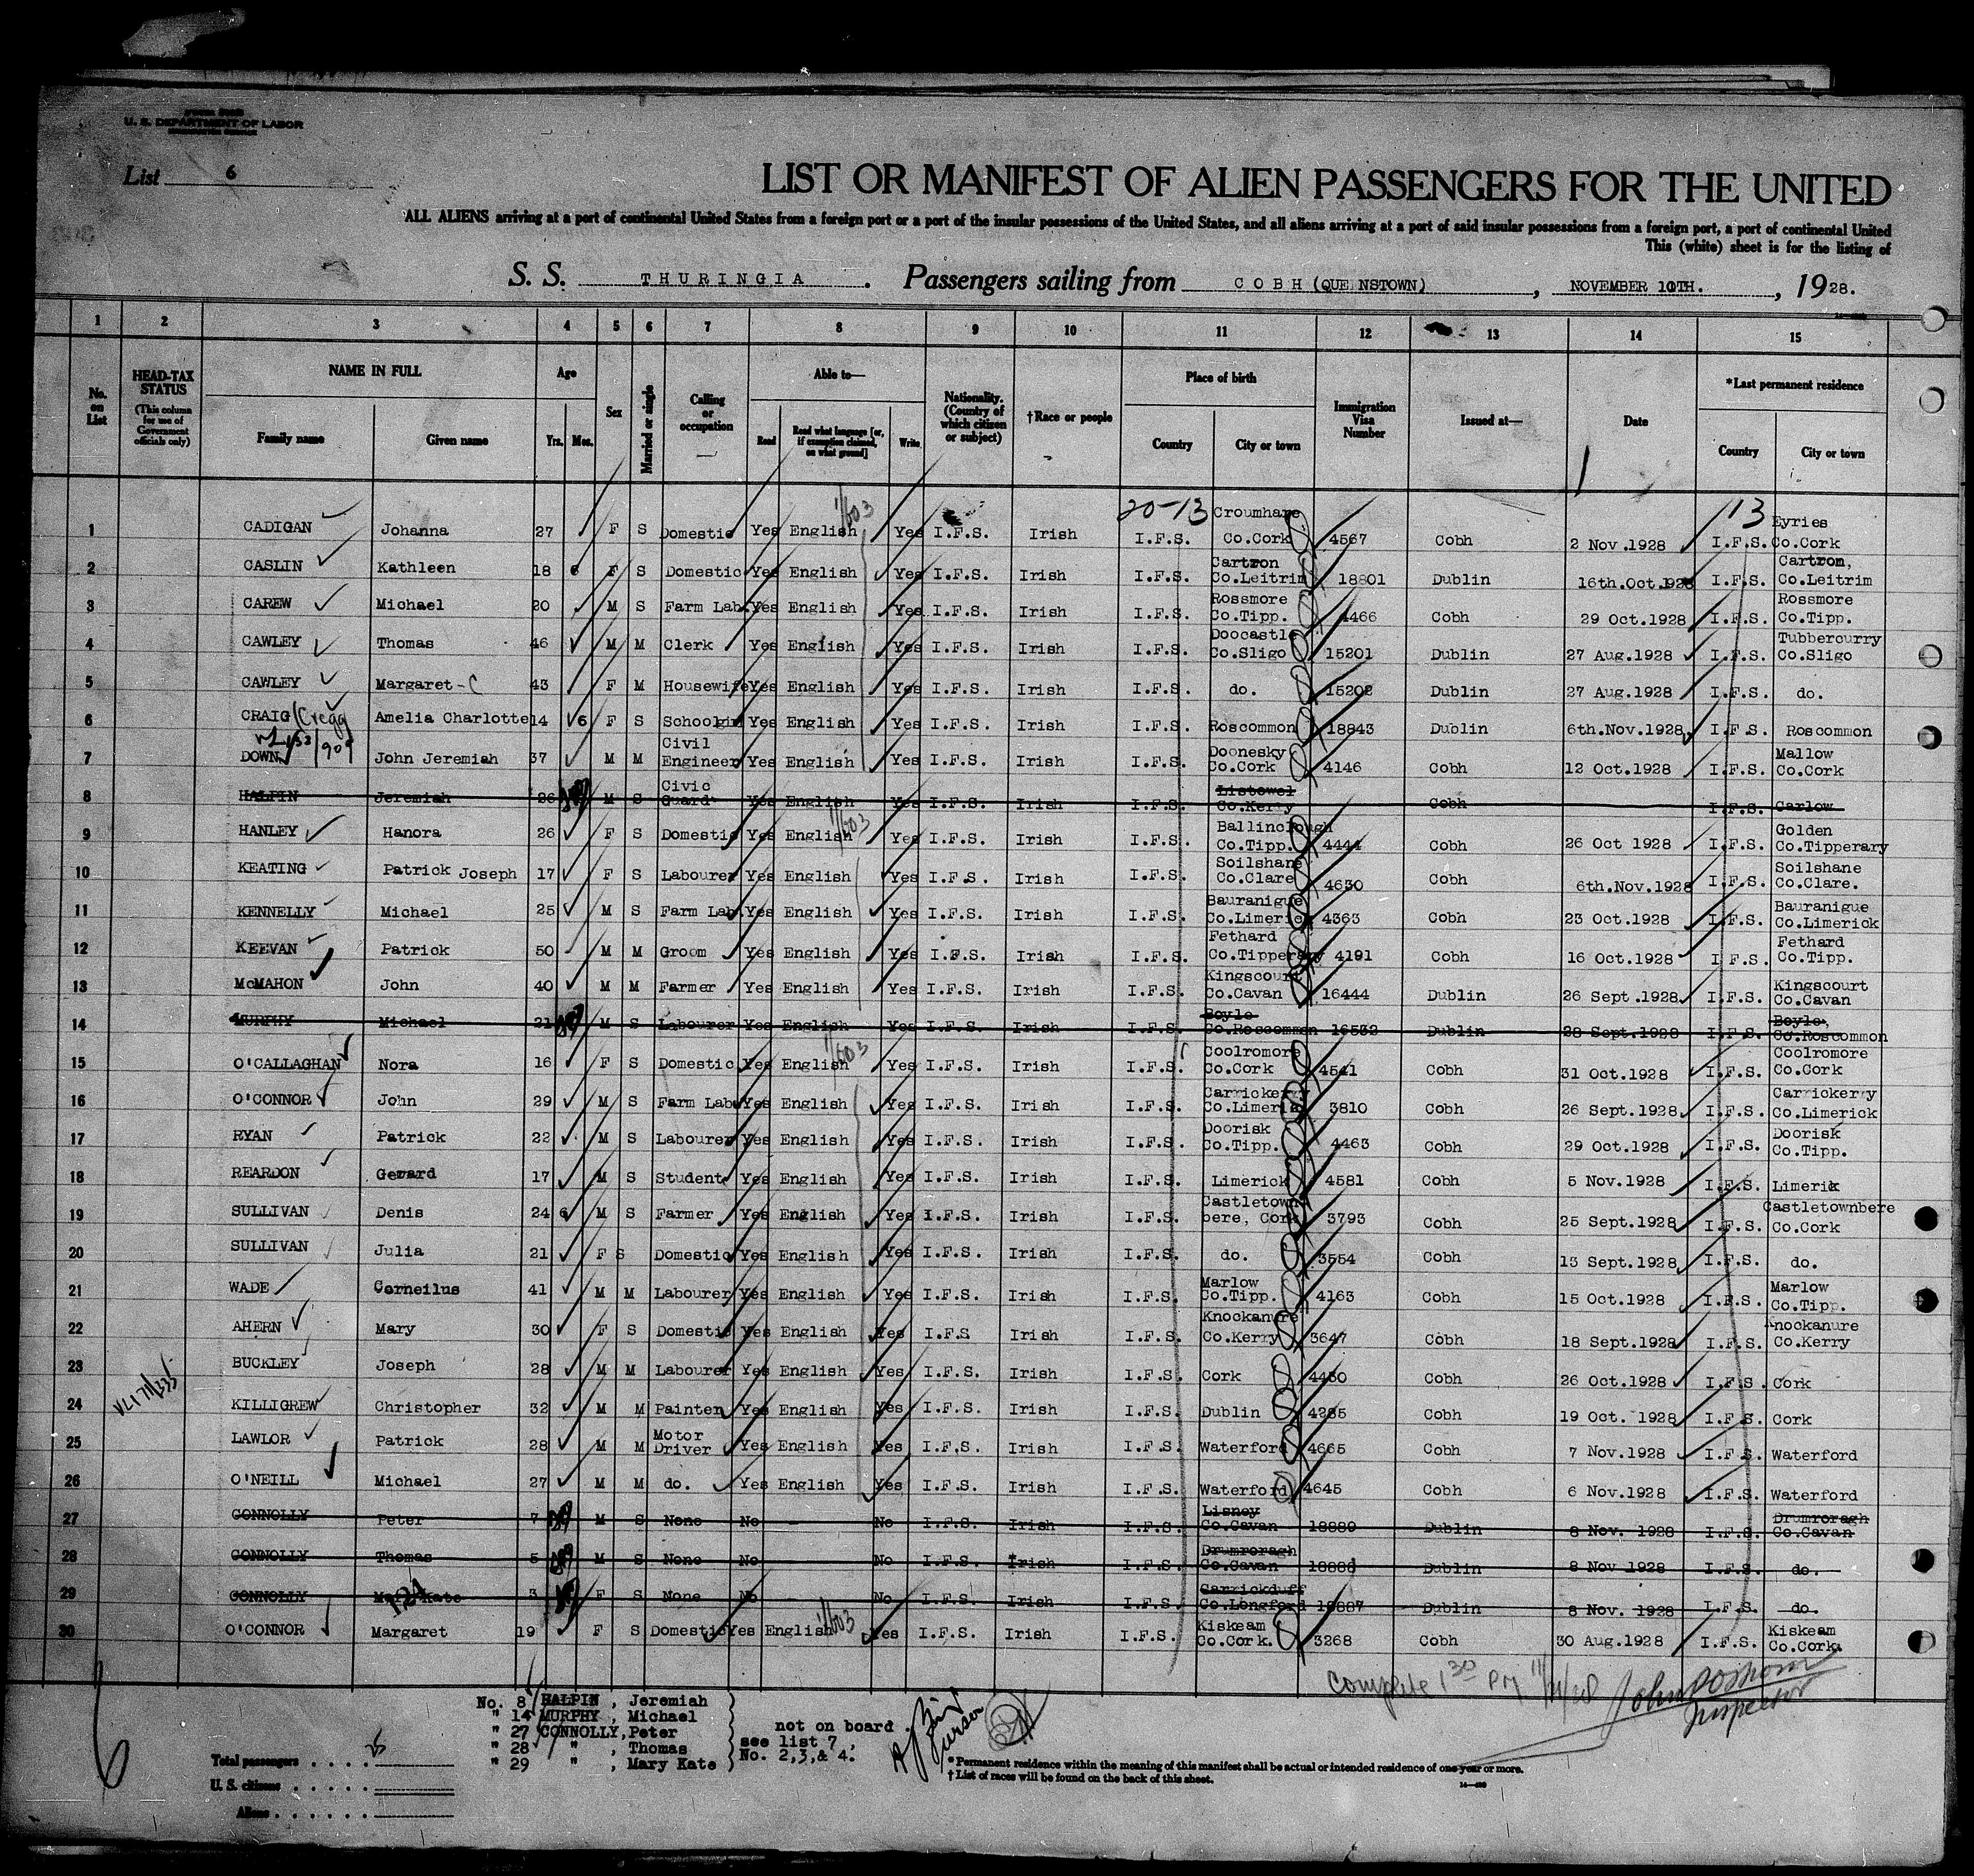 U. S. DEPARTMENT OF LABOR
List 6
LIST OR MANIFEST OF ALIEN PASSENGERS FOR THE UNITED
ALL ALIENS arriving at a port of continental United States from a foreign port or a port of the insular possessions of the United States, and all aliens arriving at a port of said insular possessions from a foreign port, a port of continental United
This (white) sheet is for the listing of
S. S. THURINGIA. Passengers sailing from COBH (QUE NSTOWN), NOVEMBER 10TH., 1928.
1 2 3 4 5 6 7 8 9 10 11 12 13 14 15
No. on List
HEAD-TAX STATUS (This column for use of Government officials only)
NAME IN FULL Family name Given name
Age Yrs. Mos.
Sex
Married or single
Calling or occupation
Able to— Read Read what language [or, if exemption claimed, on what ground] Write
Nationality. (Country of which citizen or subject)
†Race or people
Place of birth Country City or town
Immigration Visa Number
Issued at—
Date
*Last permanent residence Country City or town
20-13 13
1 CADIGAN Johanna 27 F S Domestic Yes English 1/603 Yes I.F.S. Irish I.F.S. Croumhane Co.Cork 4567 Cobh 2 Nov.1928 I.F.S. Eyries Co.Cork
2 CASLIN Kathleen 18 6 F S Domestic Yes English Yes I.F.S. Irish I.F.S. Cartron Co.Leitrim 18801 Dublin 16th.Oct.1928 I.F.S. Cartron, Co.Leitrim
3 CAREW Michael 20 M S Farm Lab. Yes English Yes I.F.S. Irish I.F.S. Rossmore Co.Tipp. 4466 Cobh 29 Oct.1928 I.F.S. Rossmore Co.Tipp.
4 CAWLEY Thomas 46 M M Clerk Yes English Yes I.F.S. Irish I.F.S. Doocastle Co.Sligo 15201 Dublin 27 Aug.1928 I.F.S. Tubbercurry Co.Sligo
5 CAWLEY Margaret-C 43 F M Housewife Yes English Yes I.F.S. Irish I.F.S. do. 15202 Dublin 27 Aug.1928 I.F.S. do.
6 CRAIG/Cregg Amelia Charlotte 14 6 F S Schoolgirl Yes English Yes I.F.S. Irish I.F.S. Roscommon 18843 Dublin 6th.Nov.1928 I.F.S. Roscommon
7 DOWN John Jeremiah 37 M M Civil Engineer Yes English Yes I.F.S. Irish I.F.S. Doonesky Co.Cork 4146 Cobh 12 Oct.1928 I.F.S. Mallow Co.Cork
8 HALPIN Jeremiah 26 M S Civic Guard Yes English Yes I.F.S. Irish I.F.S. Listowel Co.Kerry Cobh I.F.S. Carlow
9 HANLEY Hanora 26 F S Domestic Yes English 1/603 Yes I.F.S. Irish I.F.S. Ballinclough Co.Tipp. 4444 Cobh 26 Oct 1928 I.F.S. Golden Co.Tipperary
10 KEATING Patrick Joseph 17 F S Labourer Yes English Yes I.F.S. Irish I.F.S. Soilshane Co.Clare 4630 Cobh 6th.Nov.1928 I.F.S. Soilshane Co.Clare.
11 KENNELLY Michael 25 M S Farm Lab. Yes English Yes I.F.S. Irish I.F.S. Bauranigue Co.Limerick 4363 Cobh 23 Oct.1928 I.F.S. Bauranigue Co.Limerick
12 KEEVAN Patrick 50 M M Groom Yes English Yes I.F.S. Irish I.F.S. Fethard Co.Tipperary 4191 Cobh 16 Oct.1928 I.F.S. Fethard Co.Tipp.
13 McMAHON John 40 M M Farmer Yes English Yes I.F.S. Irish I.F.S. Kingscourt Co.Cavan 16444 Dublin 26 Sept.1928 I.F.S. Kingscourt Co.Cavan
14 MURPHY Michael 21 M S Labourer Yes English Yes I.F.S. Irish I.F.S. Boyle Co.Roscommon 16532 Dublin 28 Sept.1928 I.F.S. Boyle, Co.Roscommon
15 O'CALLAGHAN Nora 16 F S Domestic Yes English 1/603 Yes I.F.S. Irish I.F.S. Coolromore Co.Cork 4541 Cobh 31 Oct.1928 I.F.S. Coolromore Co.Cork
16 O'CONNOR John 29 M S Farm Lab Yes English Yes I.F.S. Irish I.F.S. Carrickerry Co.Limerick 3810 Cobh 26 Sept.1928 I.F.S. Carrickerry Co.Limerick
17 RYAN Patrick 22 M S Labourer Yes English Yes I.F.S. Irish I.F.S. Doorisk Co.Tipp. 4463 Cobh 29 Oct.1928 I.F.S. Doorisk Co.Tipp.
18 REARDON Gerard 17 M S Student Yes English Yes I.F.S. Irish I.F.S. Limerick 4581 Cobh 5 Nov.1928 I.F.S. Limerick
19 SULLIVAN Denis 24 6 M S Farmer Yes English Yes I.F.S. Irish I.F.S. Castletown bere, Cork 3793 Cobh 25 Sept.1928 I.F.S. Castletownbere Co.Cork
20 SULLIVAN Julia 21 F S Domestic Yes English Yes I.F.S. Irish I.F.S. do. 3554 Cobh 13 Sept.1928 I.F.S. do.
21 WADE Corneilus 41 M M Labourer Yes English Yes I.F.S. Irish I.F.S. Marlow Co.Tipp. 4163 Cobh 15 Oct.1928 I.F.S. Marlow Co.Tipp.
22 AHERN Mary 30 F S Domestic Yes English Yes I.F.S Irish I.F.S. Knockanure Co.Kerry 3647 Cobh 18 Sept.1928 I.F.S. Knockanure Co.Kerry
23 BUCKLEY Joseph 28 M M Labourer Yes English Yes I.F.S. Irish I.F.S. Cork 4430 Cobh 26 Oct.1928 I.F.S. Cork
24 KILLIGREW Christopher 32 M M Painter Yes English Yes I.F.S. Irish I.F.S. Dublin 4285 Cobh 19 Oct. 1928 I.F.S. Cork
25 LAWLOR Patrick 28 M M Motor Driver Yes English Yes I.F.S. Irish I.F.S. Waterford 4665 Cobh 7 Nov.1928 I.F.S. Waterford
26 O'NEILL Michael 27 M M do. Yes English Yes I.F.S. Irish I.F.S. Waterford 4645 Cobh 6 Nov.1928 I.F.S. Waterford
27 CONNOLLY Peter 7 M S None No - No I.F.S. Irish I.F.S. Lisney Co.Cavan 18889 Dublin 8 Nov. 1928 I.F.S. Drumroragh Co.Cavan
28 CONNOLLY Thomas 5 M S None No No I.F.S. Irish I.F.S. Drumroragh Co.Cavan 18888 Dublin 8 Nov 1928 I.F.S. do.
29 CONNOLLY Mary Kate 3 F S None No - No I.F.S. Irish I.F.S. Carrickduff Co.Longford 18887 Dublin 8 Nov. 1928 I.F.S. do.
30 O'CONNOR Margaret 19 F S Domestic Yes English 1/603 Yes I.F.S. Irish I.F.S. Kiskeam Co.Cork. 3268 Cobh 30 Aug.1928 I.F.S. Kiskeam Co.Cork.
Complete 1 30 PM
Inspector
No. 8 HALPIN , Jeremiah
" 14 MURPHY , Michael
" 27 CONNOLLY, Peter
" 28 " , Thomas
" 29 " , Mary Kate
not on board.
see list 7,
No. 2,3,& 4.
Purser
Total passengers
U. S. citizens
Aliens
* Permanent residence within the meaning of this manifest shall be actual or intended residence of one year or more.
† List of races will be found on the back of this sheet.